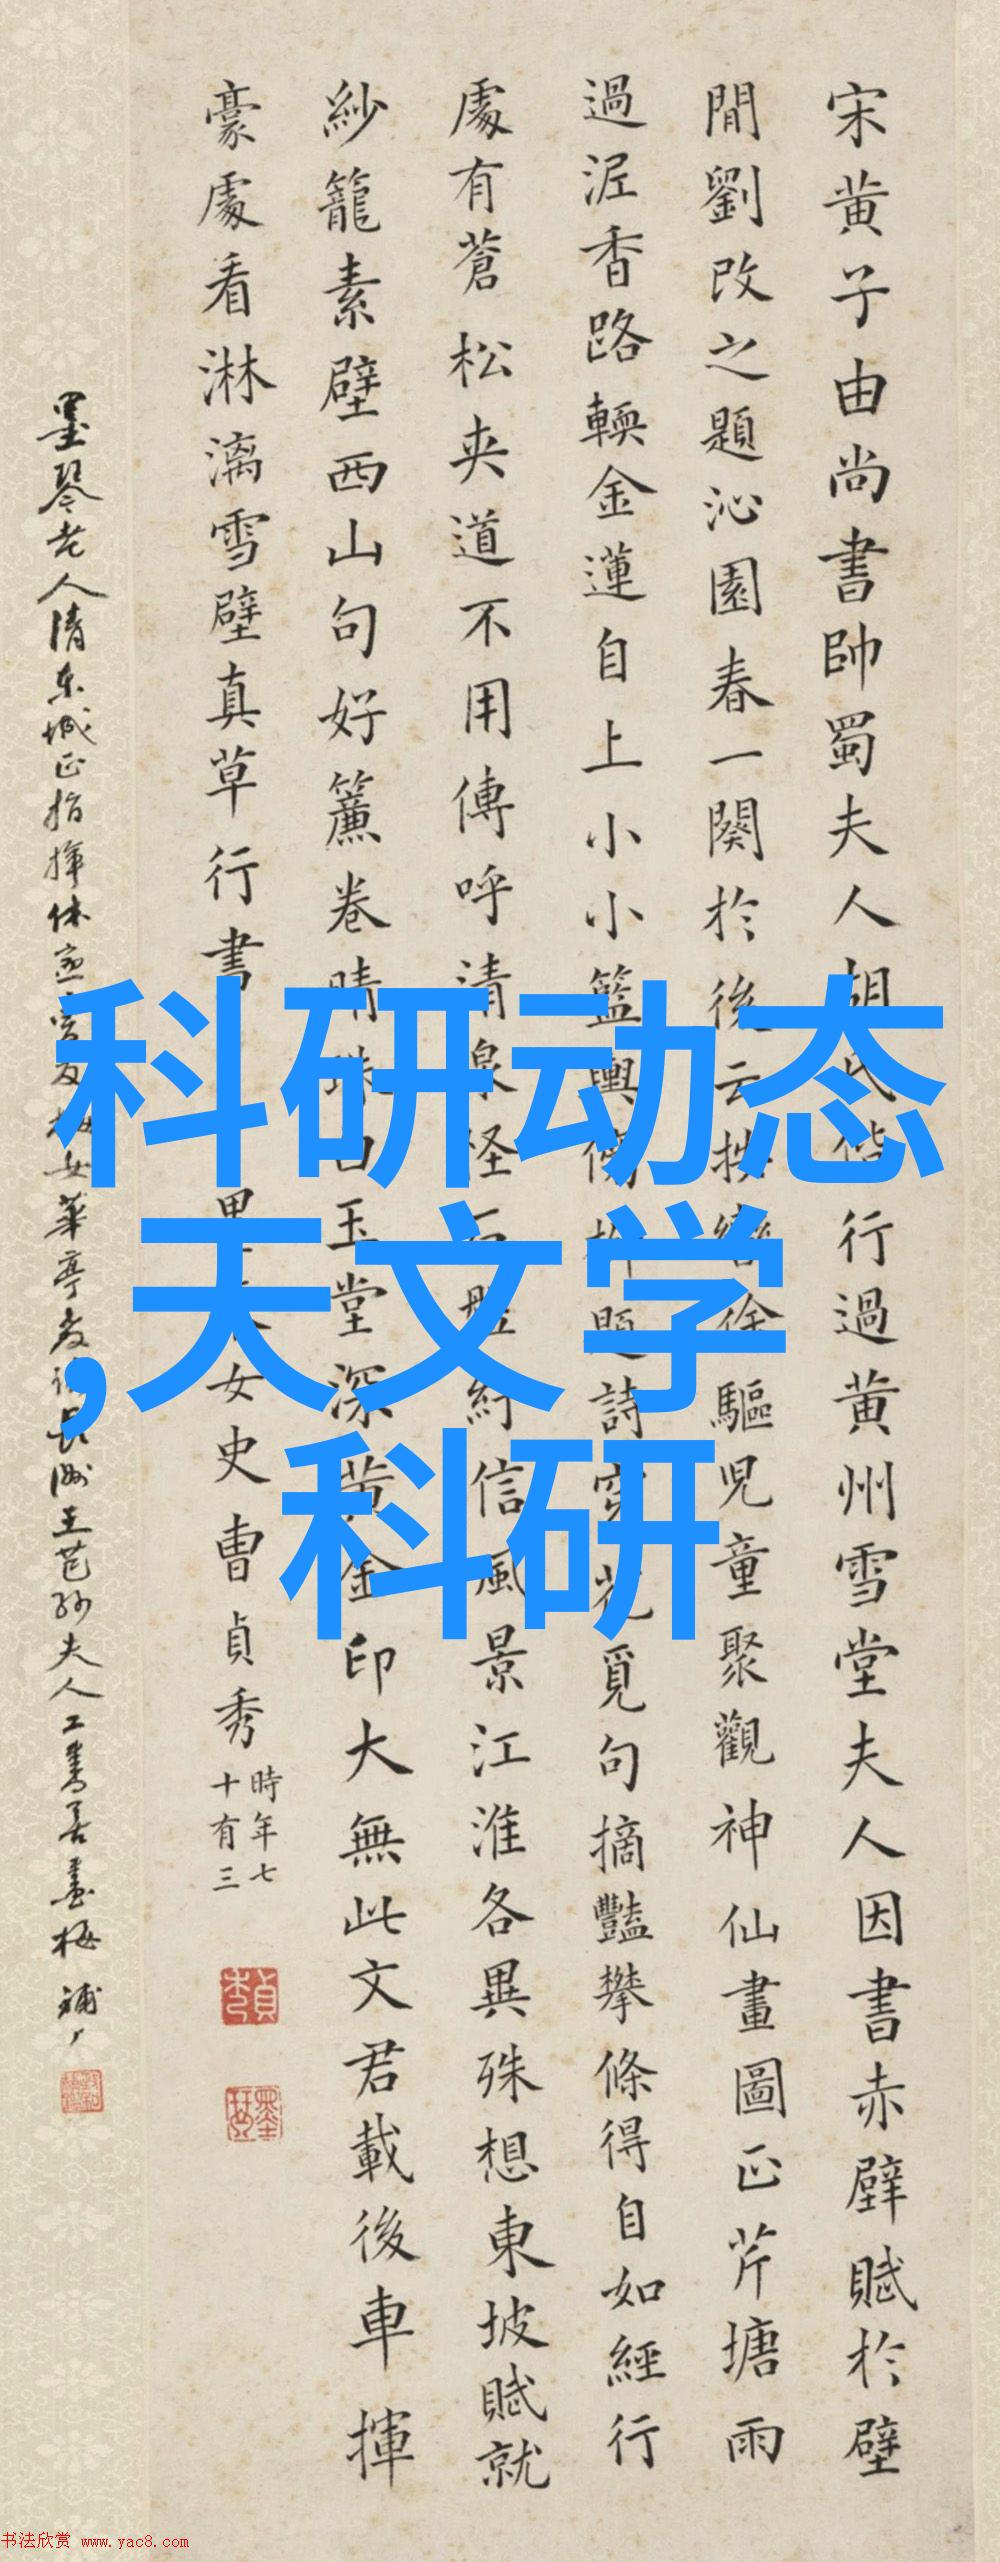 宋黄子由尚書帥蜀夫人胡氏偕行過黄州雪堂夫人因書赤壁賦於壁
閒劉改之題沁園春一闋於後云按轡徐驅兒童聚觀神仙畫圖正芹塘雨
過泥香路輭金蓮自上小小籃輿傍柳題詩穿花覓句摘豔攀條得自如經行
處有蒼松夾道不用傳呼清泉怪石盤紆信風景江淮各異殊想東坡賦就
紗籠素壁西山句好簾卷晴珠白玉堂深黄金印大無此文君載後車揮
豪處看淋漓雪壁真草行書 女史曹貞秀
時年七
十有三
墨琴老人清東城正指揮休 女華亭教諭長洲王芑孫夫人工書善畫梅
科研动态
,天文学
科研
书法欣赏 www.yac8.com